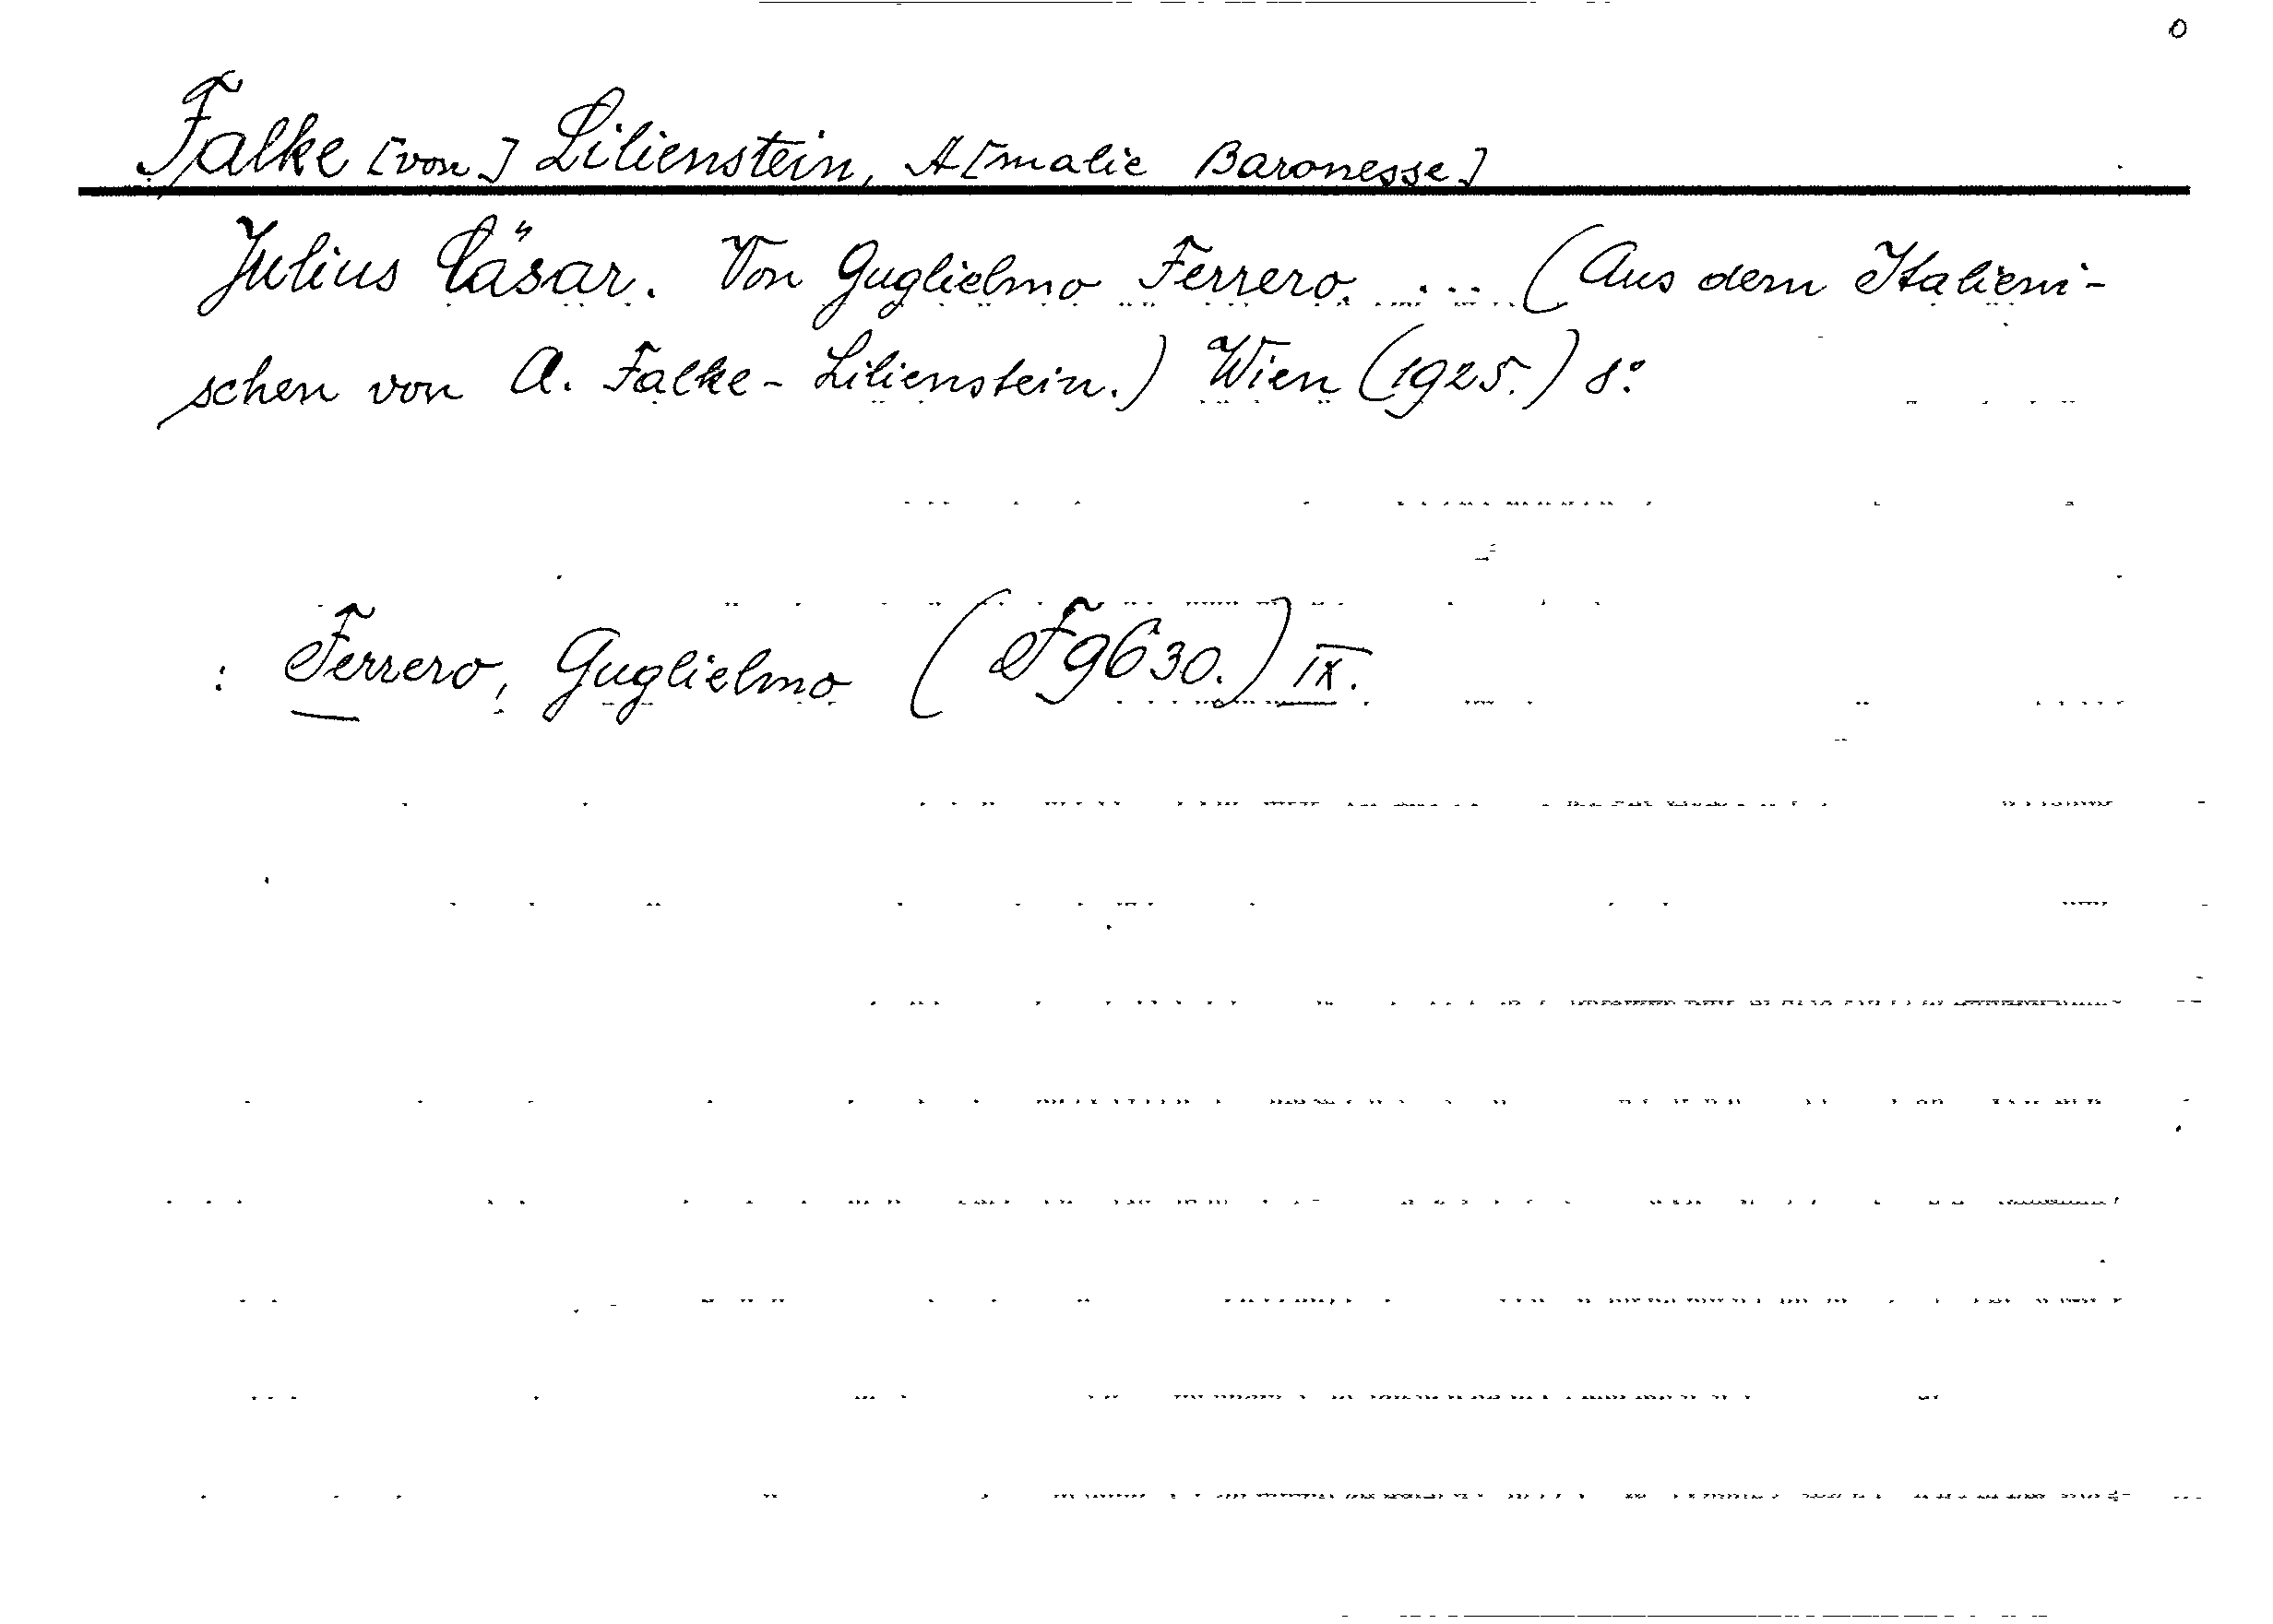 0
Falke [von] Lilienstein, A[malie Baronesse]
Julius Cäsar. Von Guglielmo Ferrero. ... (Aus dem Italieni-
schen von A. Falke-Lilienstein.) Wien (1925.) 8:
: Ferrero, Guglielmo (F9630.) IX.